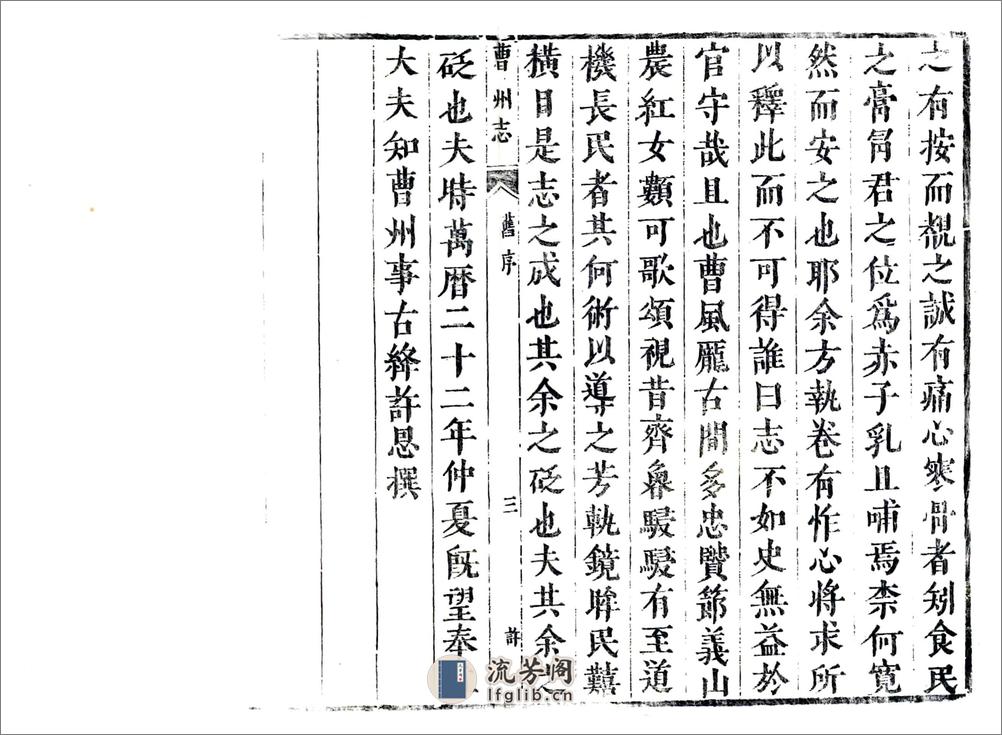 之有按而覩之誠有痛心寒骨者矧食民
之膏胥君之位為赤子乳且哺焉柰何寛
然而安之也耶余方執卷有怍心將求所
以釋此而不可得誰曰志不如史無益於
官守哉且也曹風龎古間多忠贒節義山
農紅女纇可歌頌視昔齊魯駸駸有至道
機長民者其何術以導之芳執鏡眸民囏
橫目是志之成也其余之砭也夫其余
曹州志
舊序
三
許
砭也夫時萬曆二十二年仲夏旣望奉
大夫知曹州事古絳許恩撰
流芳阁
lfglib.cn